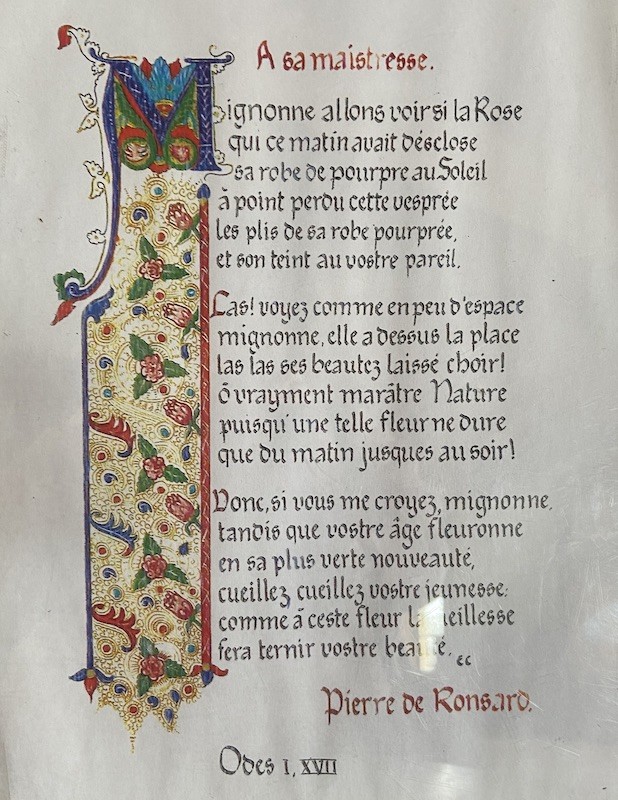 A sa maistresse.
Mignonne allons voir si la Rose
qui ce matin avait désclose
sa robe de pourpre au Soleil
à point perdu cette vesprée
les plis de sa robe pourprée,
et son teint au vostre pareil.
Las! voyez comme en peu d'espace
mignonne, elle a dessus la place
las las ses beautez laissé choir!
ô vrayment marâtre Nature
puisqu'une telle fleur ne dure
que du matin jusques au soir!
Donc, si vous me croyez, mignonne,
tandis que vostre âge fleuronne
en sa plus verte nouveauté,
cueillez cueillez vostre jeunesse:
comme à ceste fleur la vieillesse
fera ternir vostre beauté.
cc
Pierre de Ronsard.
Odes I, XVII